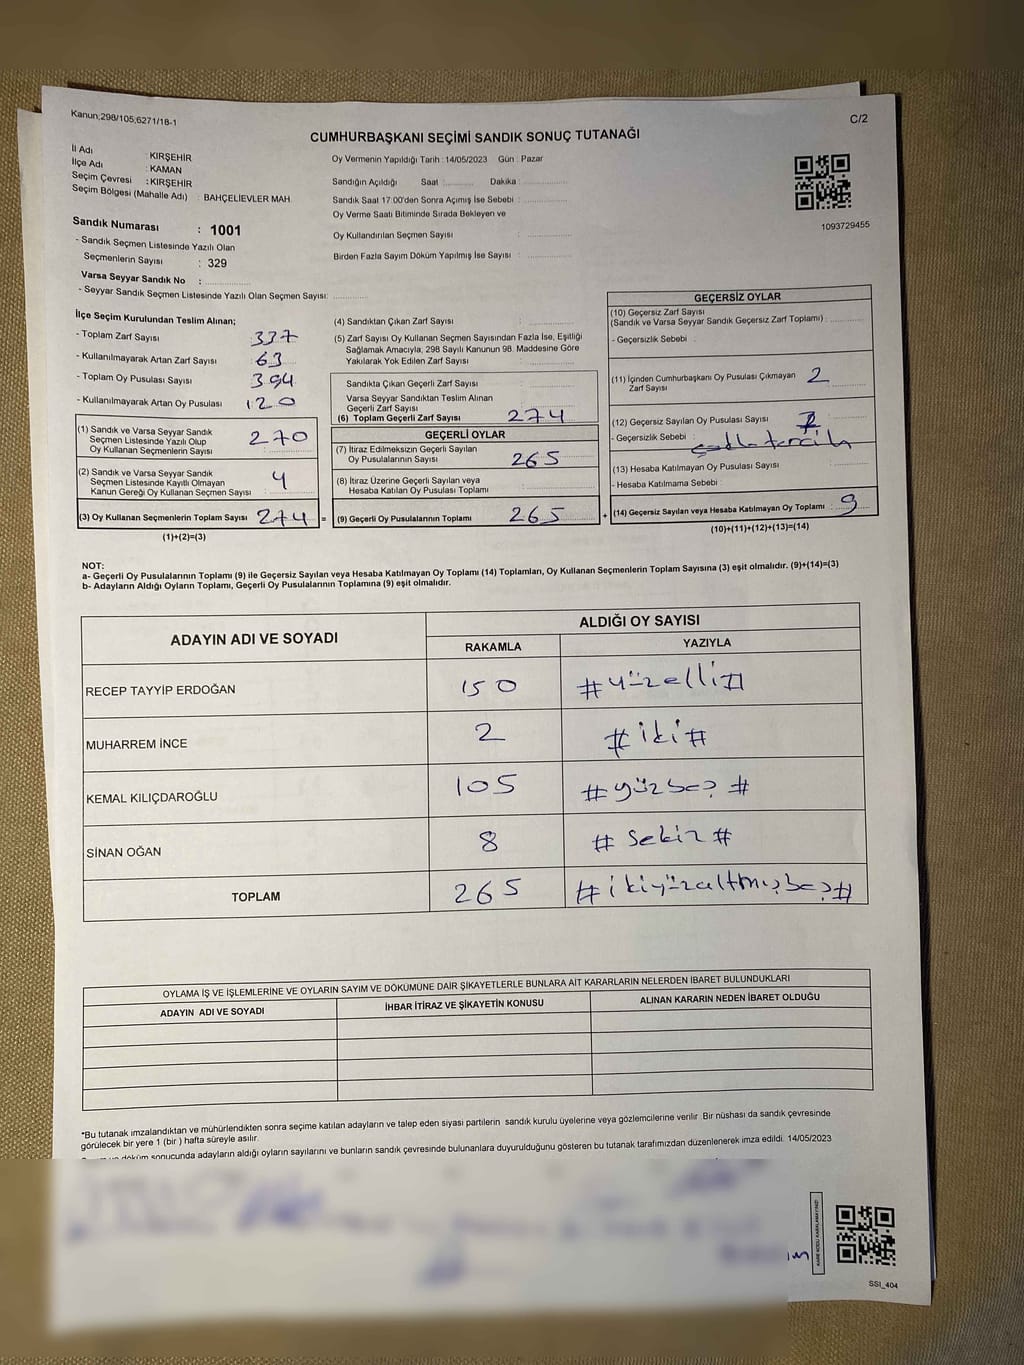 Kanun;298/105;6271/18-1
C/2
CUMHURBAŞKANI SEÇİMİ SANDIK SONUÇ TUTANAĞI
İl Adı : KIRŞEHİR
İlçe Adı : KAMAN
Seçim Çevresi : KIRŞEHİR
Seçim Bölgesi (Mahalle Adı) : BAHÇELİEVLER MAH.
Sandık Numarası : 1001
- Sandık Seçmen Listesinde Yazılı Olan
Seçmenlerin Sayısı : 329
Varsa Seyyar Sandık No :
- Seyyar Sandık Seçmen Listesinde Yazılı Olan Seçmen Sayısı:
Oy Vermenin Yapıldığı Tarih : 14/05/2023 Gün : Pazar
Sandığın Açıldığı Saat : Dakika :
Sandık Saat 17:00'den Sonra Açılmış İse Sebebi :
Oy Verme Saati Bitiminde Sırada Bekleyen ve
Oy Kullandırılan Seçmen Sayısı :
Birden Fazla Sayım Döküm Yapılmış İse Sayısı :
1093729455
İlçe Seçim Kurulundan Teslim Alınan;
- Toplam Zarf Sayısı : 337
- Kullanılmayarak Artan Zarf Sayısı : 63
- Toplam Oy Pusulası Sayısı : 394
- Kullanılmayarak Artan Oy Pusulası : 120
(1) Sandık ve Varsa Seyyar Sandık
Seçmen Listesinde Yazılı Olup
Oy Kullanan Seçmenlerin Sayısı : 270
(2) Sandık ve Varsa Seyyar Sandık
Seçmen Listesinde Kayıtlı Olmayan
Kanun Gereği Oy Kullanan Seçmen Sayısı : 4
(3) Oy Kullanan Seçmenlerin Toplam Sayısı : 274 =
(1)+(2)=(3)
(4) Sandıktan Çıkan Zarf Sayısı :
(5) Zarf Sayısı Oy Kullanan Seçmen Sayısından Fazla İse, Eşitliği
Sağlamak Amacıyla, 298 Sayılı Kanunun 98. Maddesine Göre
Yakılarak Yok Edilen Zarf Sayısı :
Sandıkta Çıkan Geçerli Zarf Sayısı :
Varsa Seyyar Sandıktan Teslim Alınan
Geçerli Zarf Sayısı :
(6) Toplam Geçerli Zarf Sayısı : 274
GEÇERLİ OYLAR
(7) İtiraz Edilmeksizin Geçerli Sayılan
Oy Pusulalarının Sayısı : 265
(8) İtiraz Üzerine Geçerli Sayılan veya
Hesaba Katılan Oy Pusulası Toplamı :
(9) Geçerli Oy Pusulalarının Toplamı : 265 +
GEÇERSİZ OYLAR
(10) Geçersiz Zarf Sayısı
(Sandık ve Varsa Seyyar Sandık Geçersiz Zarf Toplamı) :
- Geçersizlik Sebebi :
(11) İçinden Cumhurbaşkanı Oy Pusulası Çıkmayan
Zarf Sayısı : 2
(12) Geçersiz Sayılan Oy Pusulası Sayısı : 7
- Geçersizlik Sebebi :
(13) Hesaba Katılmayan Oy Pusulası Sayısı :
- Hesaba Katılmama Sebebi :
(14) Geçersiz Sayılan veya Hesaba Katılmayan Oy Toplamı : 9
(10)+(11)+(12)+(13)=(14)
NOT:
a- Geçerli Oy Pusulalarının Toplamı (9) ile Geçersiz Sayılan veya Hesaba Katılmayan Oy Toplamı (14) Toplamları, Oy Kullanan Seçmenlerin Toplam Sayısına (3) eşit olmalıdır. (9)+(14)=(3)
b- Adayların Aldığı Oyların Toplamı, Geçerli Oy Pusulalarının Toplamına (9) eşit olmalıdır.
ADAYIN ADI VE SOYADI
ALDIĞI OY SAYISI
RAKAMLA YAZIYLA
RECEP TAYYİP ERDOĞAN 150 #yüzelli#
MUHARREM İNCE 2 #iki#
KEMAL KILIÇDAROĞLU 105 #yüzbeş#
SİNAN OĞAN 8 #sekiz#
TOPLAM 265 #ikiyüzaltmışbeş#
OYLAMA İŞ VE İŞLEMLERİNE VE OYLARIN SAYIM VE DÖKÜMÜNE DAİR ŞİKAYETLERLE BUNLARA AİT KARARLARIN NELERDEN İBARET BULUNDUKLARI
ADAYIN ADI VE SOYADI İHBAR İTİRAZ VE ŞİKAYETİN KONUSU ALINAN KARARIN NEDEN İBARET OLDUĞU
*Bu tutanak imzalandıktan ve mühürlendikten sonra seçime katılan adayların ve talep eden siyasi partilerin sandık kurulu üyelerine veya gözlemcilerine verilir. Bir nüshası da sandık çevresinde
görülecek bir yere 1 (bir) hafta süreyle asılır.
döküm sonucunda adayların aldığı oyların sayılarını ve bunların sandık çevresinde bulunanlara duyurulduğunu gösteren bu tutanak tarafımızdan düzenlenerek imza edildi. 14/05/2023
SSI_404